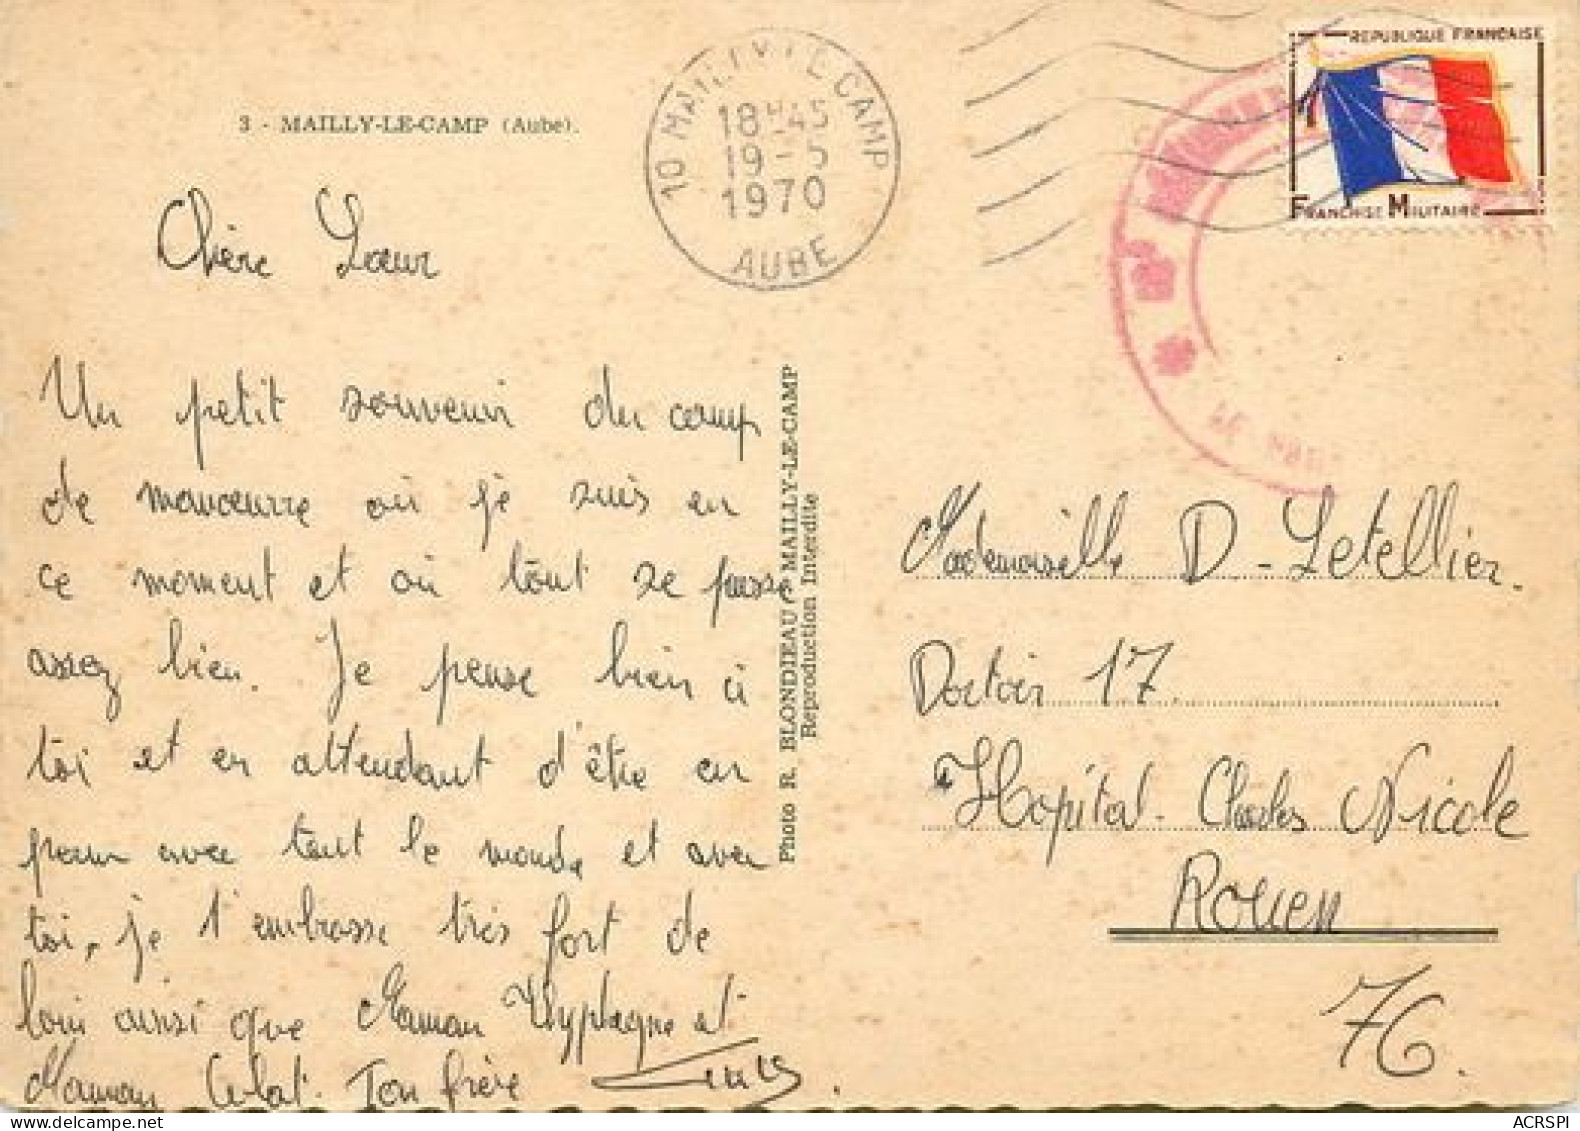 3 - MAILLY-LE-CAMP (Aube).
10 MAILLY LE CAMP
18H45
19-5
1970
AUBE
REPUBLIQUE FRANCAISE
FRANCHISE MILITAIRE
Chère Sœur
Un petit souvenir du camp
de manœuvre où je suis en
ce moment et où tout se passe
assez bien. Je pense bien à
toi et en attendant d'être en
perm avec tout le monde et avec
toi, je t'embrasse très fort de
loin ainsi que Maman et
Maman Ton frère
Photo R. BLONDIEAU MAILLY-LE-CAMP
Reproduction Interdite
Mademoiselle D - Letellier.
Dortoir 17.
Hopital - Charles Nicole
Rouen
76.
ACRSPI